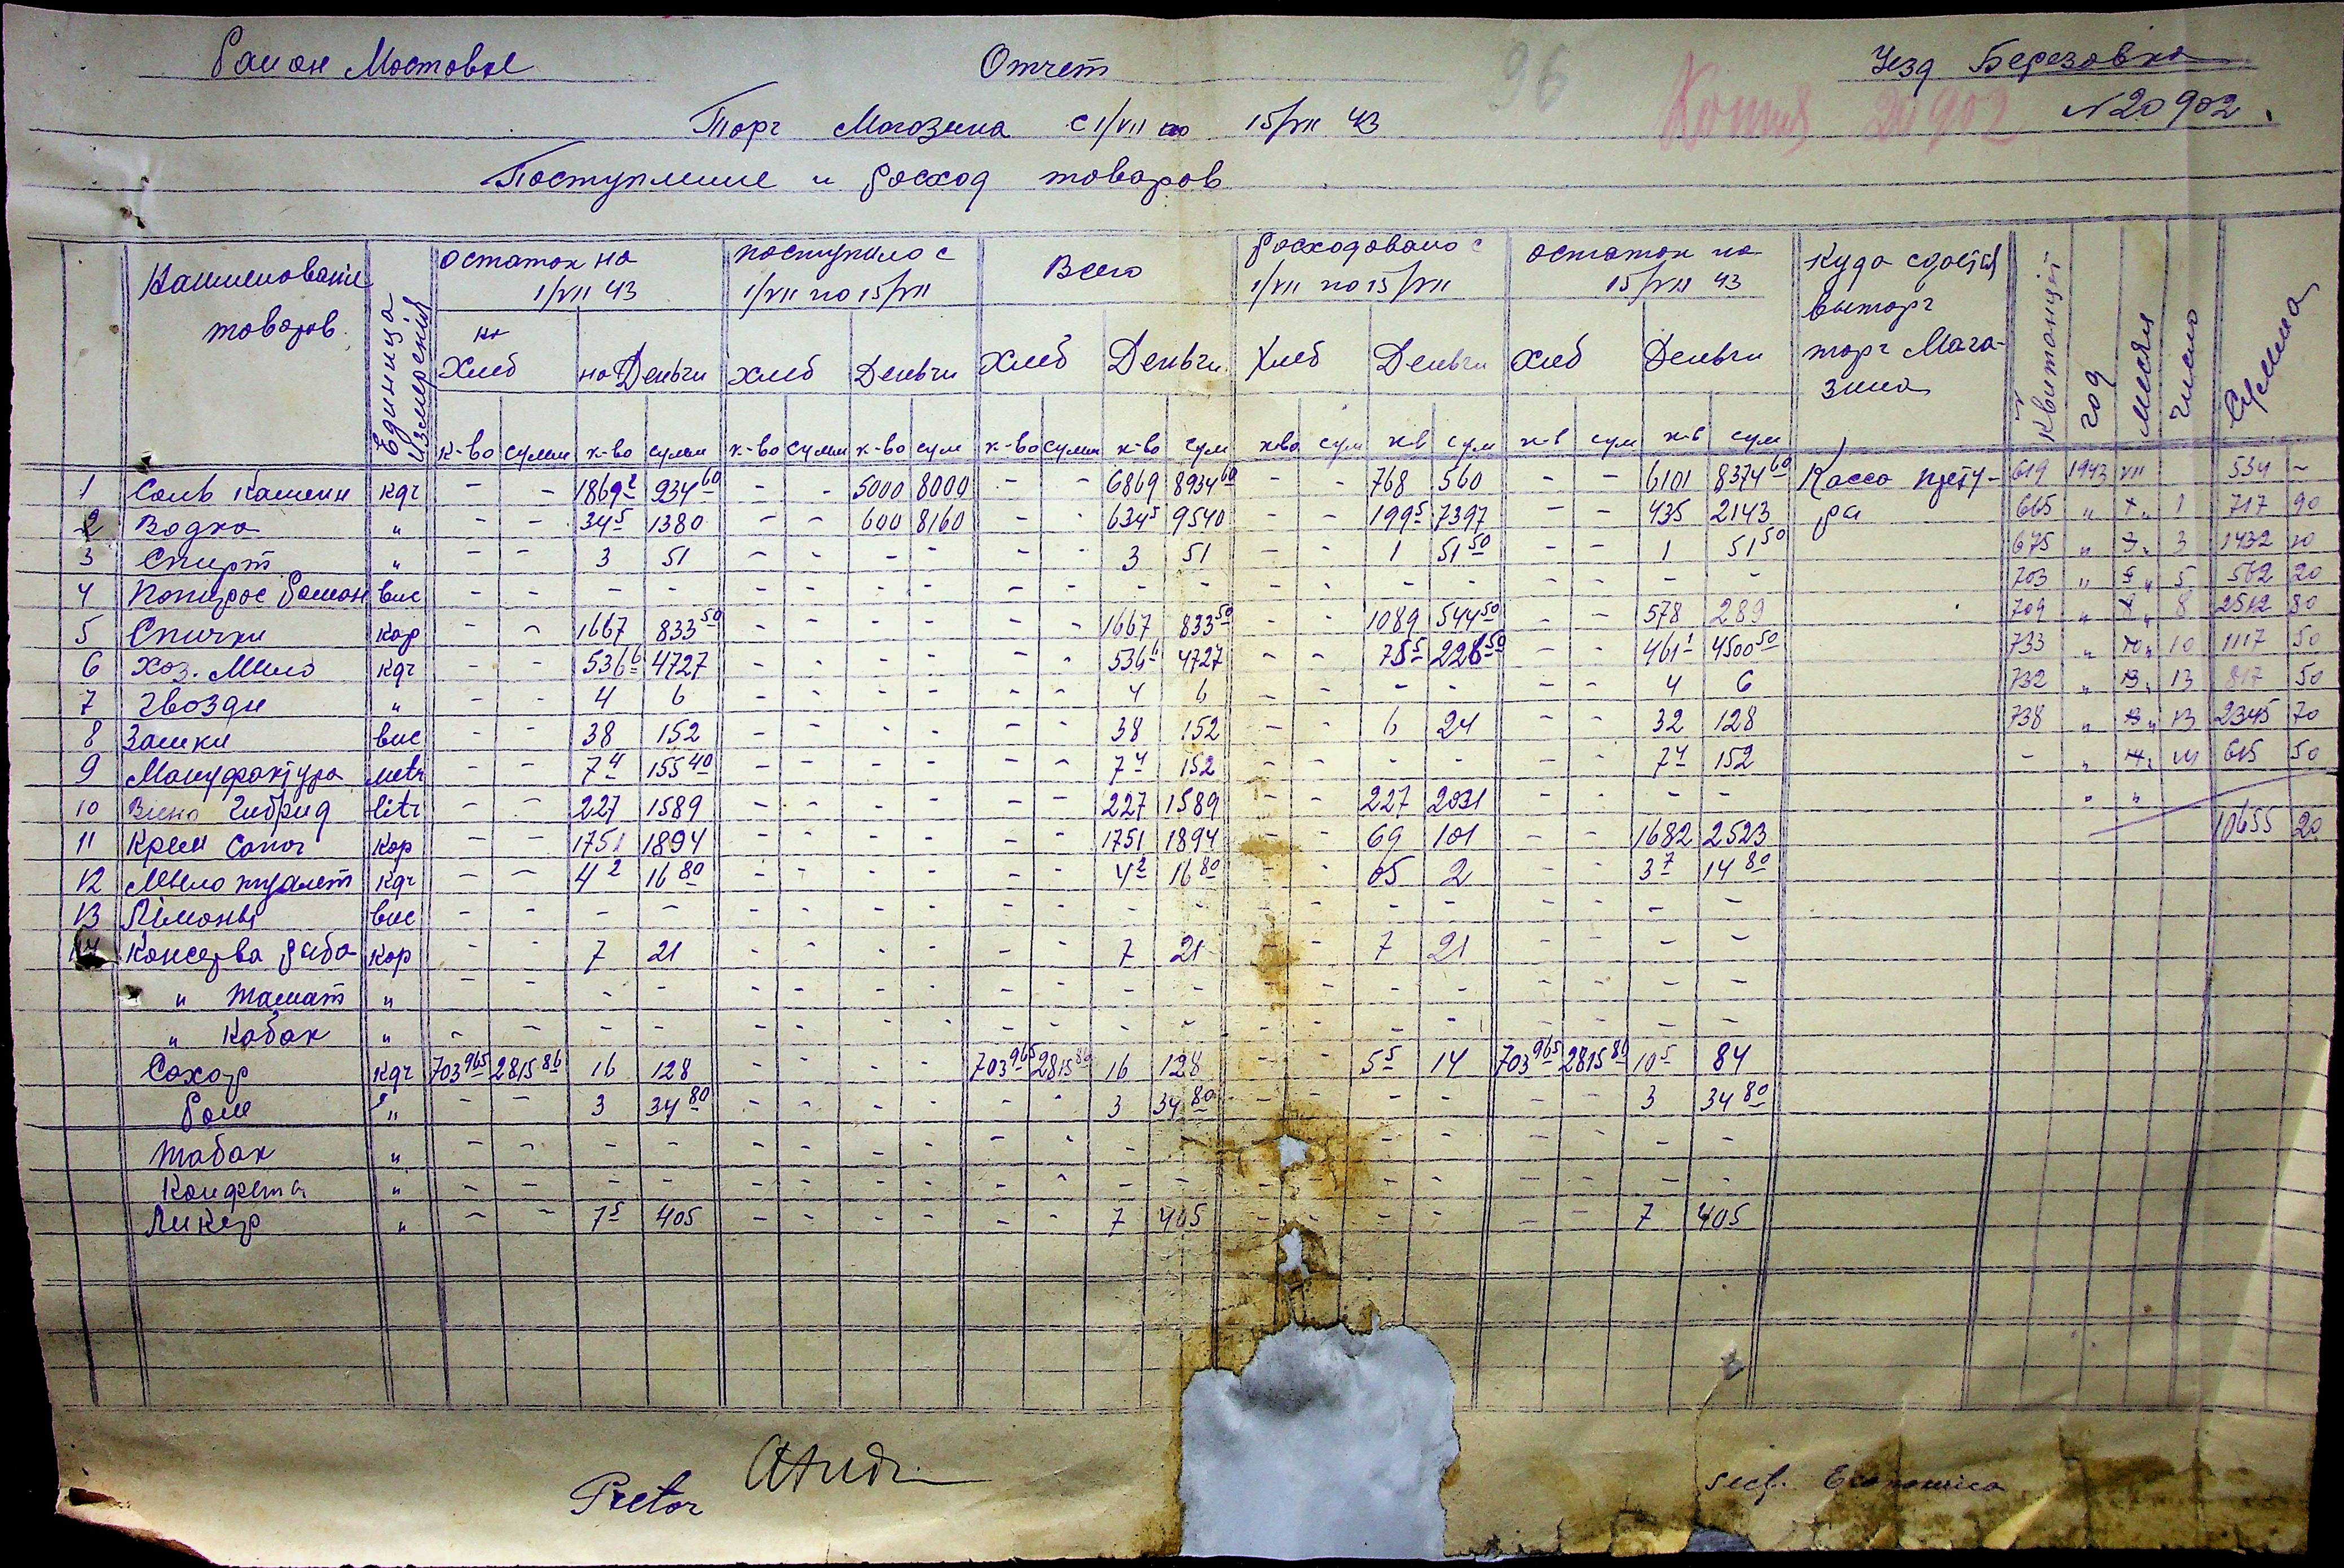 Район Мостовое Отчет Уезд Березовка
96 Копия 20902 N 20902.
Торг Магазина с 1/VII по 15/VII 43
Поступление и росход товаров
Наименование товаров
Единица Измерения
остаток на 1/VII 43
поступило с 1/VII по 15/VII
Всего
росходовано с 1/VII по 15/VII
остаток на 15/VII 43
Куда сдоется выторг торг Мага-зина
№ Квитанций
год
месяц
число
Сумма
на Хлеб на Деньги Хлеб Деньги Хлеб Деньги Хлеб Деньги Хлеб Деньги
к-во сумм к-во сумм к-во сумм к-во сум к-во сумм к-во сум кво сум к-в сум к-в сум к-в сум
1 Соль Каменн кдг - - 1869² 934⁶⁰ - - 5000 8000 - - 6869 8934⁶⁰ - - 768 560 - - 6101 8374⁶⁰ Касса прету- 619 1943 VII 534 -
2 Водка " - - 34⁵ 1380 - - 600 8160 - - 634⁵ 9540 - - 199⁵ 7397 - - 435 2143 ра 665 " " 1 717 90
3 Спирт " - - 3 51 - - - - - - 3 51 - - 1 51⁵⁰ - - 1 51⁵⁰ 675 " " 3 1432 10
4 Попирос Роман вис - - - - - - - - - - - - - - - - - - - - 703 " " 5 562 20
5 Спички кор - - 1667 833⁵⁰ - - - - - - 1667 833⁵⁰ - - 1089 544⁵⁰ - - 578 289 709 " " 8 2512 80
6 Хоз. Мыло кдг - - 536⁶ 4727 - - - - - - 536⁶ 4727 - - 75⁵ 226⁵⁰ - - 461¹ 4500⁵⁰ 733 " " 10 1117 50
7 Гвозди " - - 4 6 - - - - - - 4 6 - - - - - - 4 6 732 " " 13 817 50
8 Замки вис - - 38 152 - - - - - - 38 152 - - 6 24 - - 32 128 738 " " 13 2345 70
9 Мануфактура metr - - 7⁴ 155⁴⁰ - - - - - - 7⁴ 152 - - - - - - 7⁴ 152 - " " 14 615 50
10 Вино Гибрид litr - - 227 1589 - - - - - - 227 1589 - - 227 2031 - - - - " "
11 Крем Сапог кор - - 1751 1894 - - - - - - 1751 1894 - - 69 101 - - 1682 2523 10655 20
12 Мыло туалет кдг - - 4² 16⁸⁰ - - - - - - 4² 16⁸⁰ - - 05 2 - - 3⁷ 14⁸⁰
13 Лімонья вис - - - - - - - - - - - - - - - - - - - -
14 Консерва риба кор - - 7 21 - - - - - - 7 21 - - 7 21 - - - -
" томат " - - - - - - - - - - - - - - - - - - - -
" Кабак " - - - - - - - - - - - - - - - - - - - -
Сохор кдг 703⁹⁶⁵ 2815⁸⁶ 16 128 - - - - 703⁹⁶⁵ 2815⁸⁶ 16 128 - - 5⁵ 14 703⁹⁶⁵ 2815⁸⁶ 10⁵ 84
Ром " - - 3 34⁸⁰ - - - - - - 3 34⁸⁰ - - - - - - 3 34⁸⁰
табак " - - - - - - - - - - - - - - - - - -
Конфета " - - - - - - - - - - - - - - - - - - - -
Ликер " - - 7⁵ 405 - - - - - - 7 405 - - - - - - 7 405
Pretor
secf. Economica